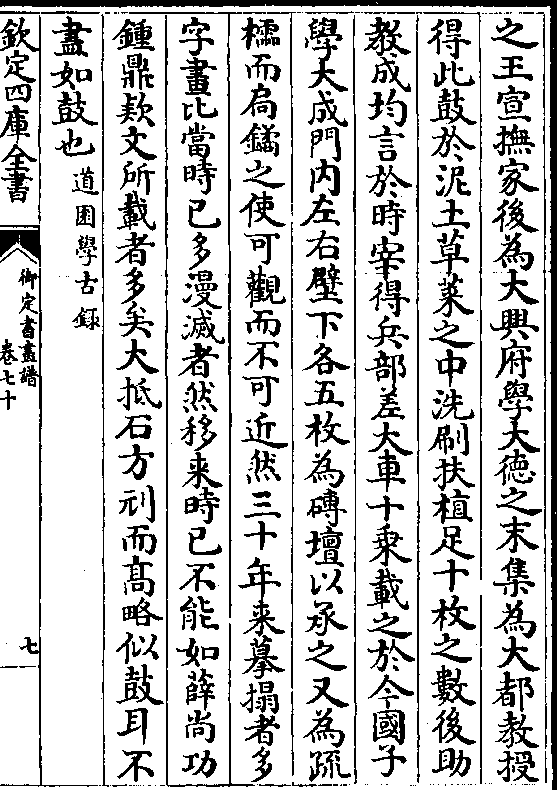 之王宣撫家後為大興府學大德之末集為大都教授
得此鼓於泥土草萊之中洗刷扶植足十枚之數後助
教成均言於時宰得兵部差大車十乗載之於今國子
學大成門内左右壁下各五枚為磚壇以承之又為疏
櫺而扃鐍之使可觀而不可近然三十年来摹搨者多
字畫比當時已多漫滅者然移来時已不能如薛尚功
鍾鼎欵文所載者多矣大抵石方刓而髙略似鼓耳不
盡如鼓也道園學古録
欽定四庫全書
御定書畫譜
卷七十
七